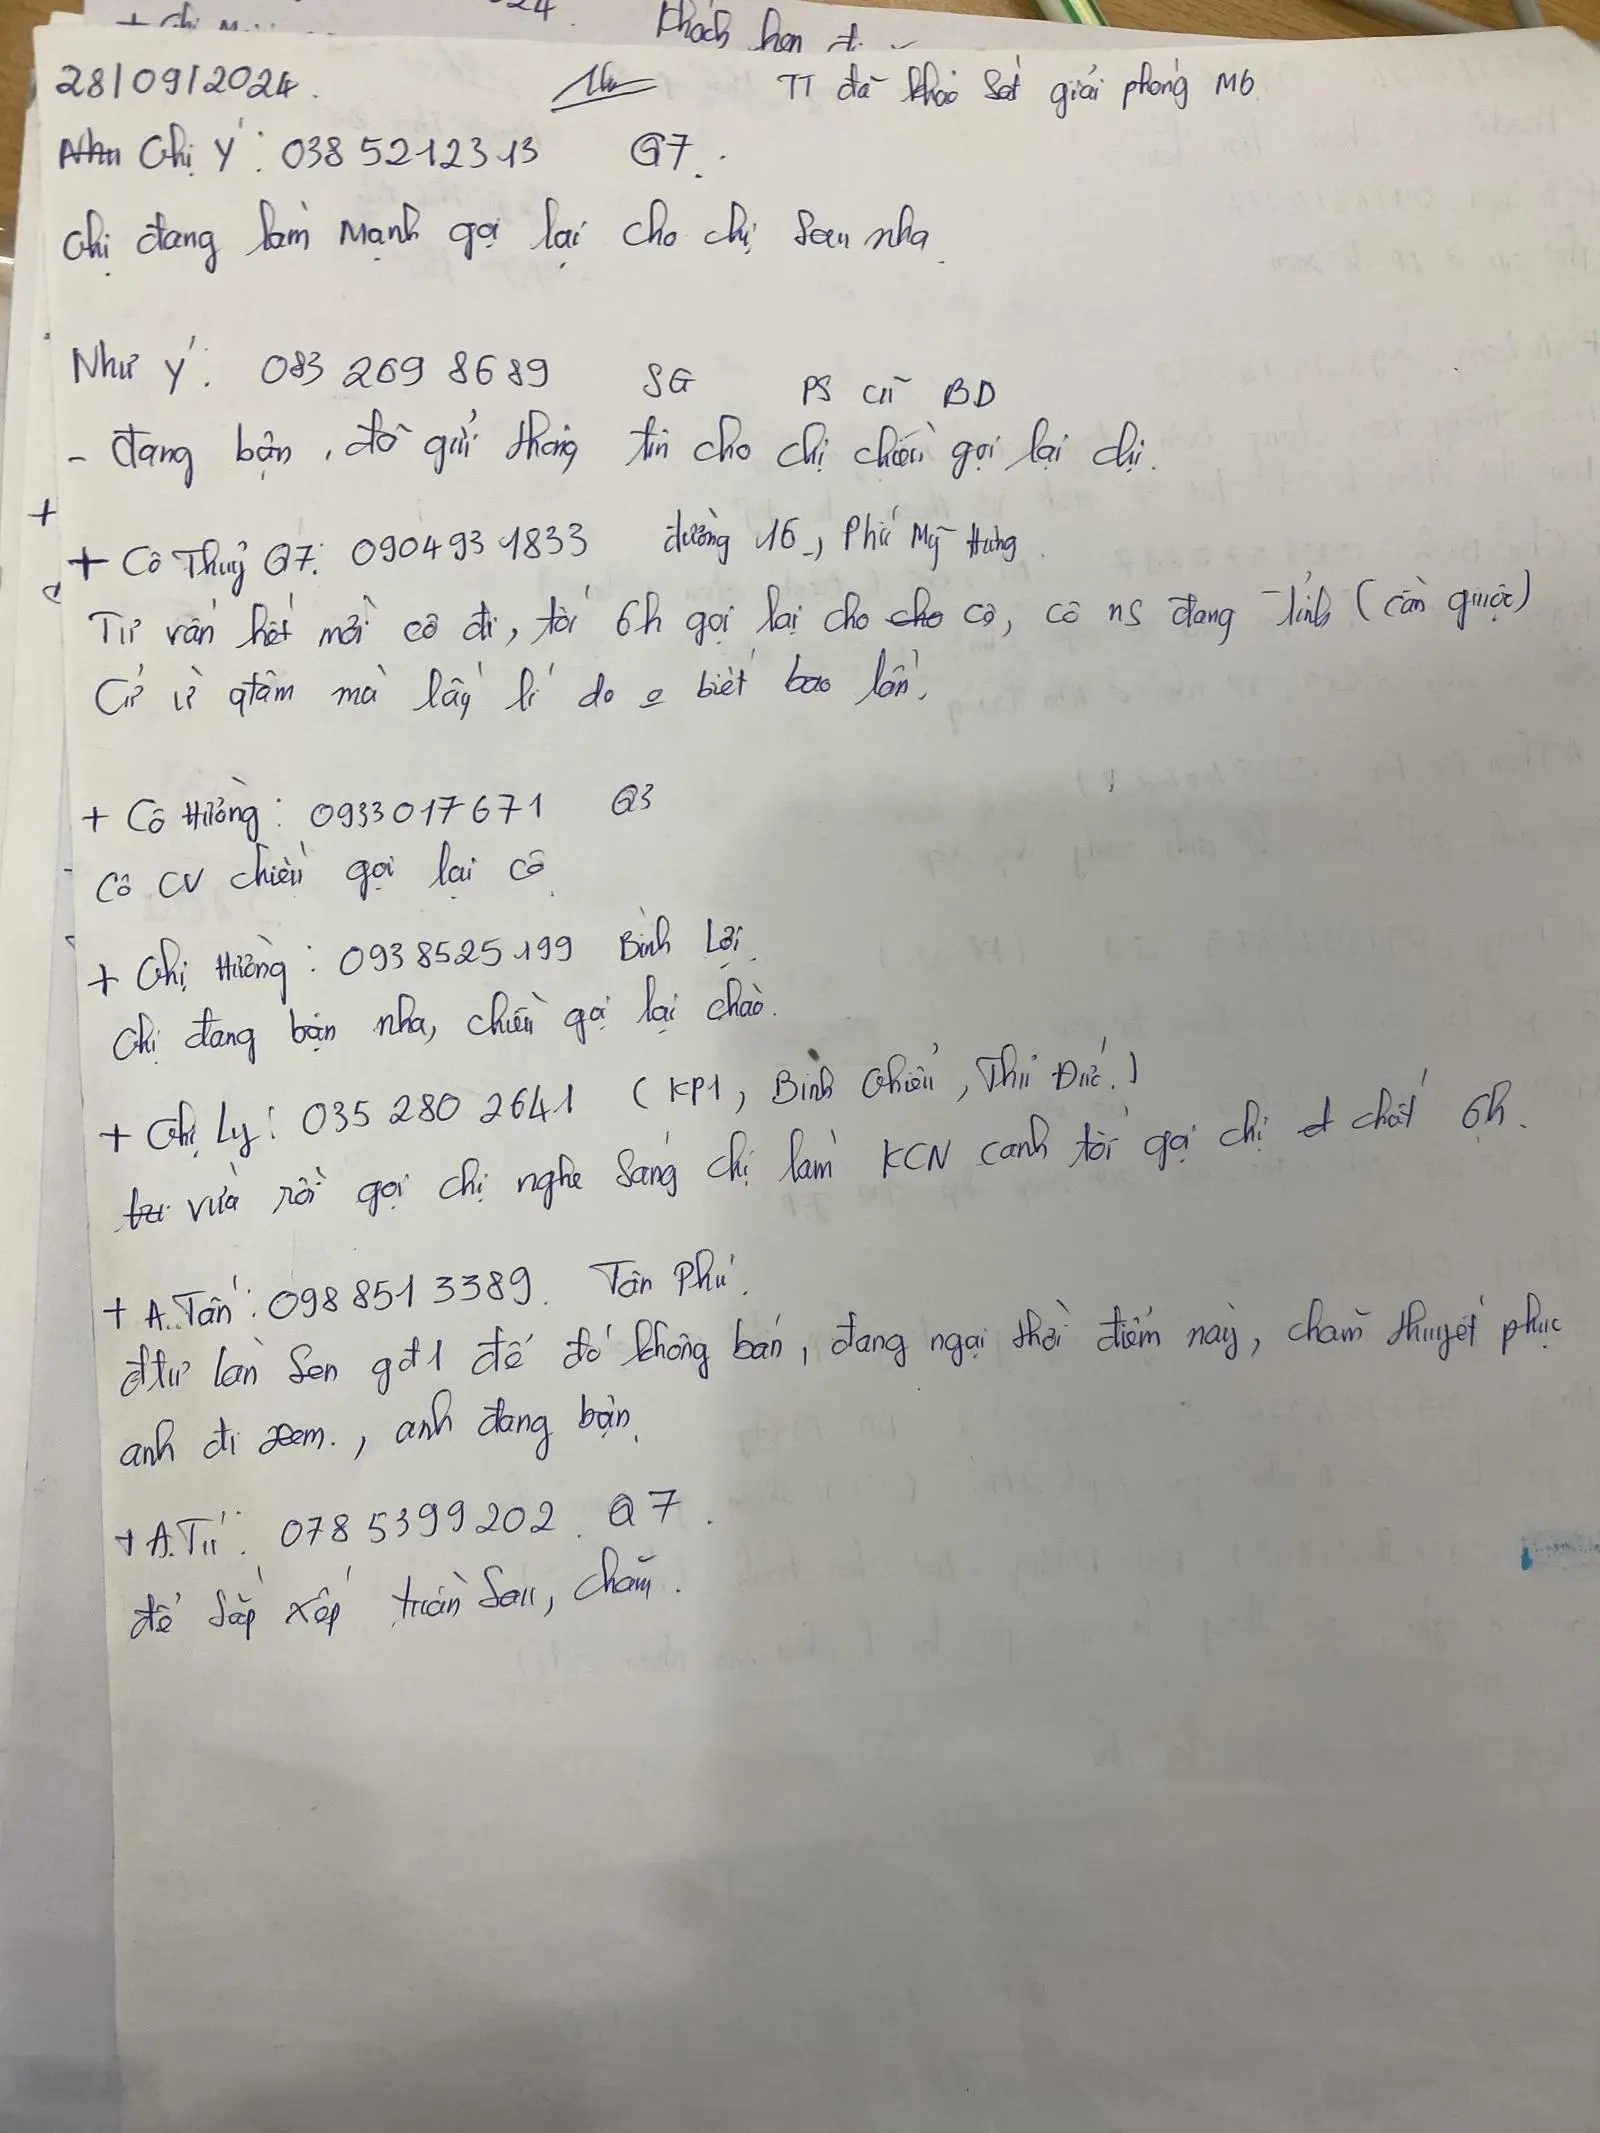 Khách hẹn đi
28/09/2024. Thu TT đã khảo sát giải phóng M6
Như Chị Ý: 0385212313 Q7.
Chị đang làm Mạnh gọi lại cho chị sau nha.
Như Ý: 083 269 8689 SG PS cũ BD
- đang bận, đã gửi thông tin cho chị chiều gọi lại chị.
+
+ Cô Thuỷ Q7: 0904931833 đường 16, Phú Mỹ Hưng.
Tư vấn hết mời cô đi, tới 6h gọi lại cho cho cô, cô ns đang tỉnh (cần giuộc)
Cứ ừ qtâm mà lấy lí do biết bao lần.
+ Cô Hường: 0933017671 Q3
Cô CV chiều gọi lại cô.
+ Chị Hường: 0938525199 Bình Lợi.
Chị đang bận nha, chiều gọi lại chào.
+ Chị Ly: 035 280 2641 (KP1, Bình Chiểu, Thủ Đức.)
vừa rồi gọi chị nghe sáng chị làm KCN canh tới gọi chị chốt 6h.
+ A. Tấn: 0988513389. Tân Phú.
đtư lần Sen gđ1 để đó không bán, đang ngại thời điểm này, chăm thuyết phục
anh đi xem., anh đang bận.
+ A. Tú: 0785399202. Q7.
để sắp xếp tuần sau, chăm.